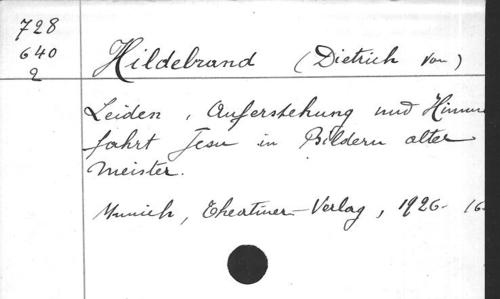 728
640
2
Hildebrand (Dietrich von)
Leiden, Auferstehung und Himm
fahrt Jesu in Bildern alter
Meister.
Munich, Theatiner-Verlag, 1926. 16